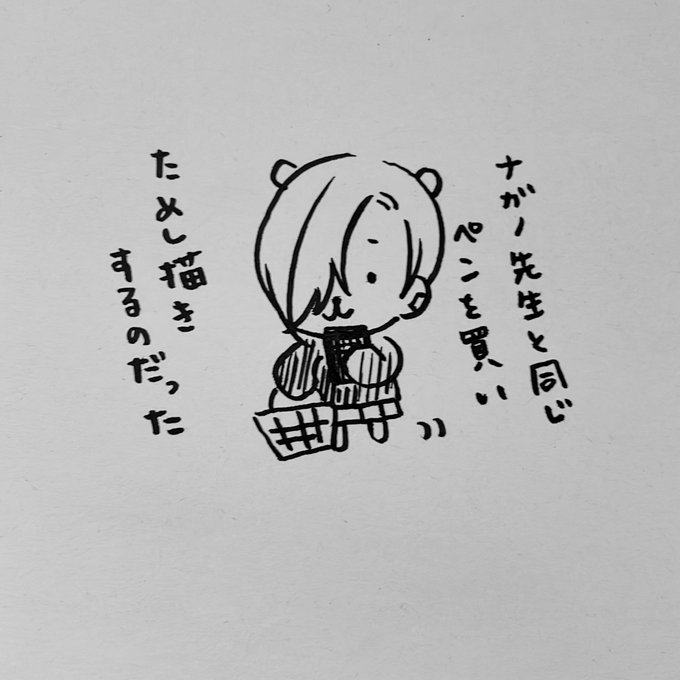 ナガノ先生と同じ
ペンを買い
ためし描き
するのだった